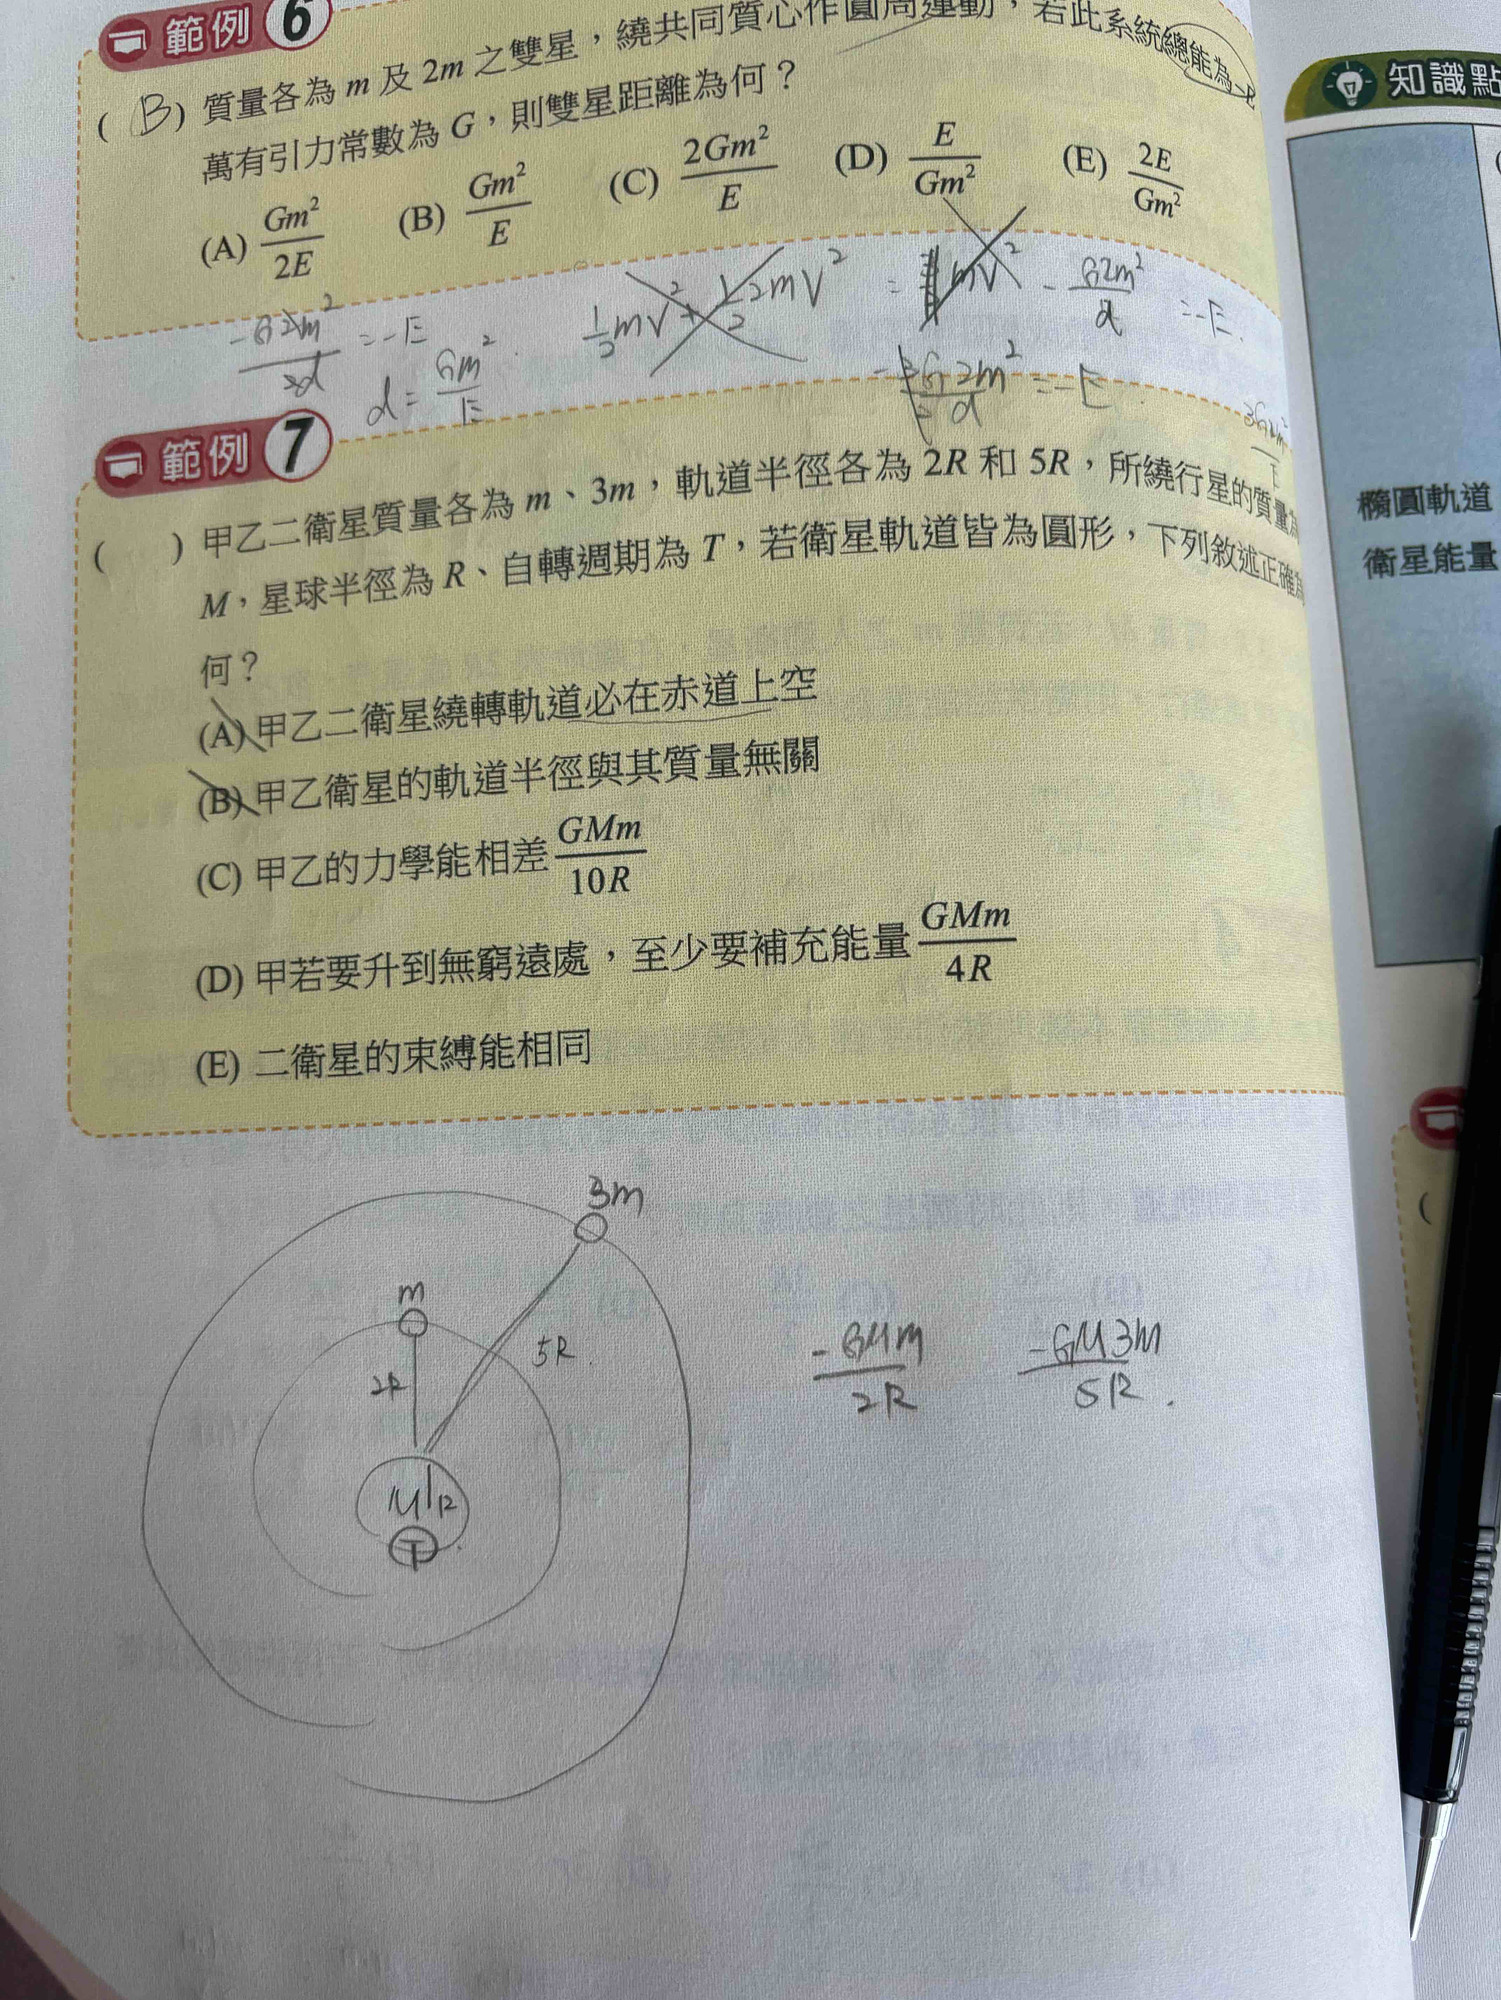 範例 6
( B ) 質量各為 m 及 2m 之雙星，繞共同質心作圓周運動，若此系統總能為 -E
萬有引力常數為 G，則雙星距離為何？
(A) Gm²/2E (B) Gm²/E (C) 2Gm²/E (D) E/Gm² (E) 2E/Gm²
-G2m²/2d = -E
d = Gm²/E
½mv² + ½2mv² = mv² - G2m²/d = -E.
範例 7
( ) 甲乙二衛星質量各為 m、3m，軌道半徑各為 2R 和 5R，所繞行星的質量為
M，星球半徑為 R、自轉週期為 T，若衛星軌道皆為圓形，下列敘述正確為
何？
(A) 甲乙二衛星繞轉軌道必在赤道上空
(B) 甲乙衛星的軌道半徑與其質量無關
(C) 甲乙的力學能相差 GMm/10R
(D) 甲若要升到無窮遠處，至少要補充能量 GMm/4R
(E) 二衛星的束縛能相同
3m
m
2R
5R
M R
T
-GMm/2R
-GM3m/5R
知識點
橢圓軌道
衛星能量
(